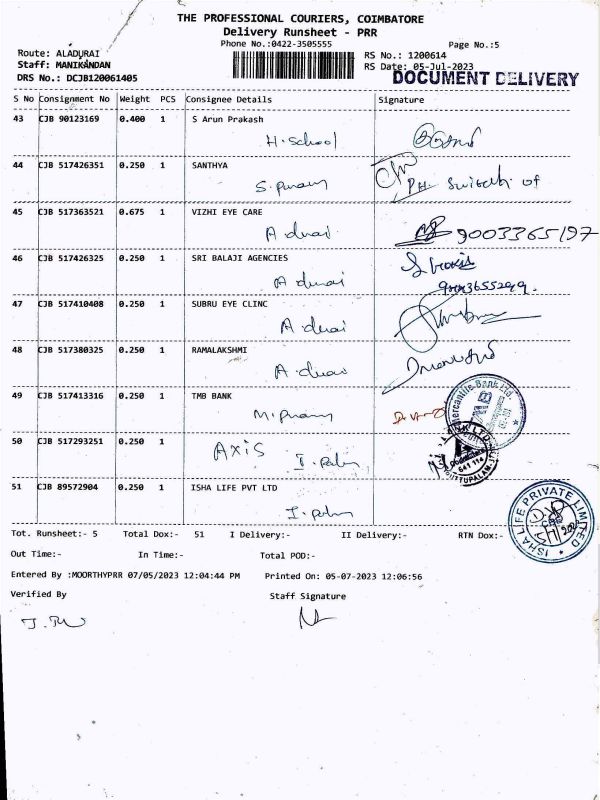 THE PROFESSIONAL COURIERS, COIMBATORE
Delivery Runsheet - PRR
Phone No.:0422-3505555
Page No.:5
Route: ALADURAI
Staff: MANIKANDAN
DRS No.: DCJB120061405
RS No.: 1200614
RS Date: 05-Jul-2023
DOCUMENT DELIVERY
S No Consignment No Weight PCS Consignee Details Signature
43 CJB 90123169 0.400 1 S Arun Prakash
H. School
44 CJB 517426351 0.250 1 SANTHYA
PH. Switch of
45 CJB 517363521 0.675 1 VIZHI EYE CARE
A durai 9003365197
46 CJB 517426325 0.250 1 SRI BALAJI AGENCIES
A durai
47 CJB 517410408 0.250 1 SUBRU EYE CLINC
A durai
48 CJB 517380325 0.250 1 RAMALAKSHMI
A durai
49 CJB 517413316 0.250 1 TMB BANK
Mercantile Bank Ltd.
50 CJB 517293251 0.250 1 AXIS
641 114
51 CJB 89572904 0.250 1 ISHA LIFE PVT LTD
ISHA LIFE PRIVATE LIMITED
Tot. Runsheet:- 5 Total Dox:- 51 I Delivery:- II Delivery:- RTN Dox:-
Out Time:- In Time:- Total POD:-
Entered By :MOORTHYPRR 07/05/2023 12:04:44 PM Printed On: 05-07-2023 12:06:56
Verified By Staff Signature